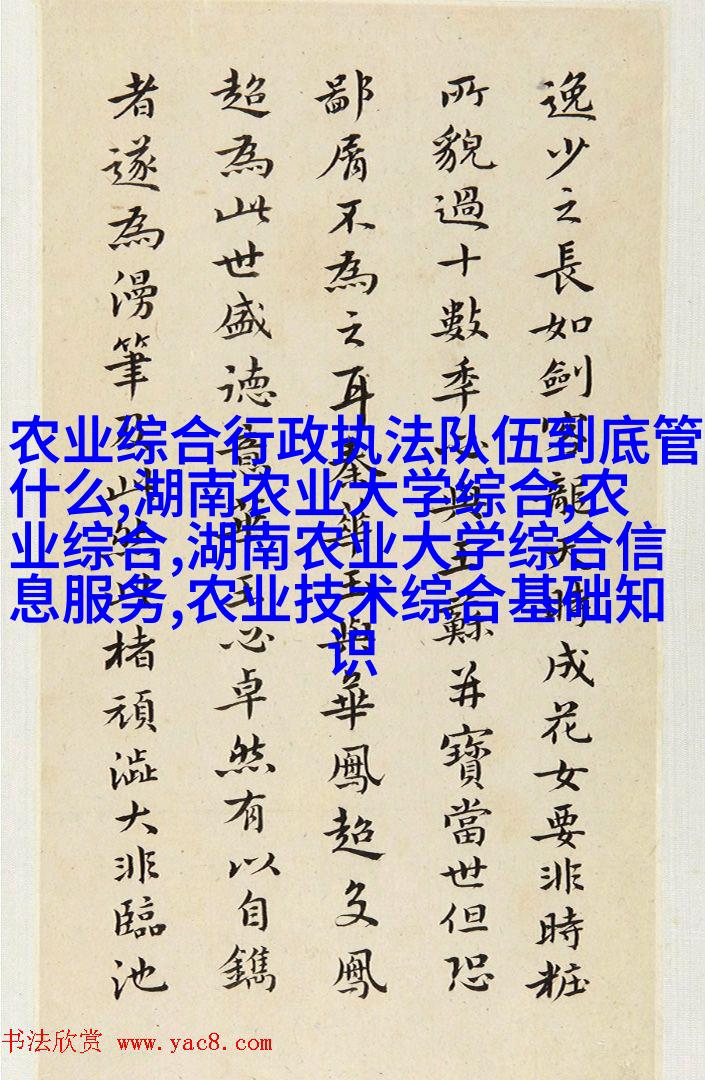 逸少之長如劍客龍天時成花女要非時粧
所貌過十數季與王蘇并寶當世但恐
鄙屑不為之耳秦華玉與華鳳超文鳳
超為此世盛德意華玉必卓然有以自鐫
者遂為漫筆及此然此楮頑澁大非臨池
农业综合行政执法队伍到底管
什么,湖南农业大学综合,农
业综合,湖南农业大学综合信
息服务,农业技术综合基础知
识
书法欣赏 www.yac8.com